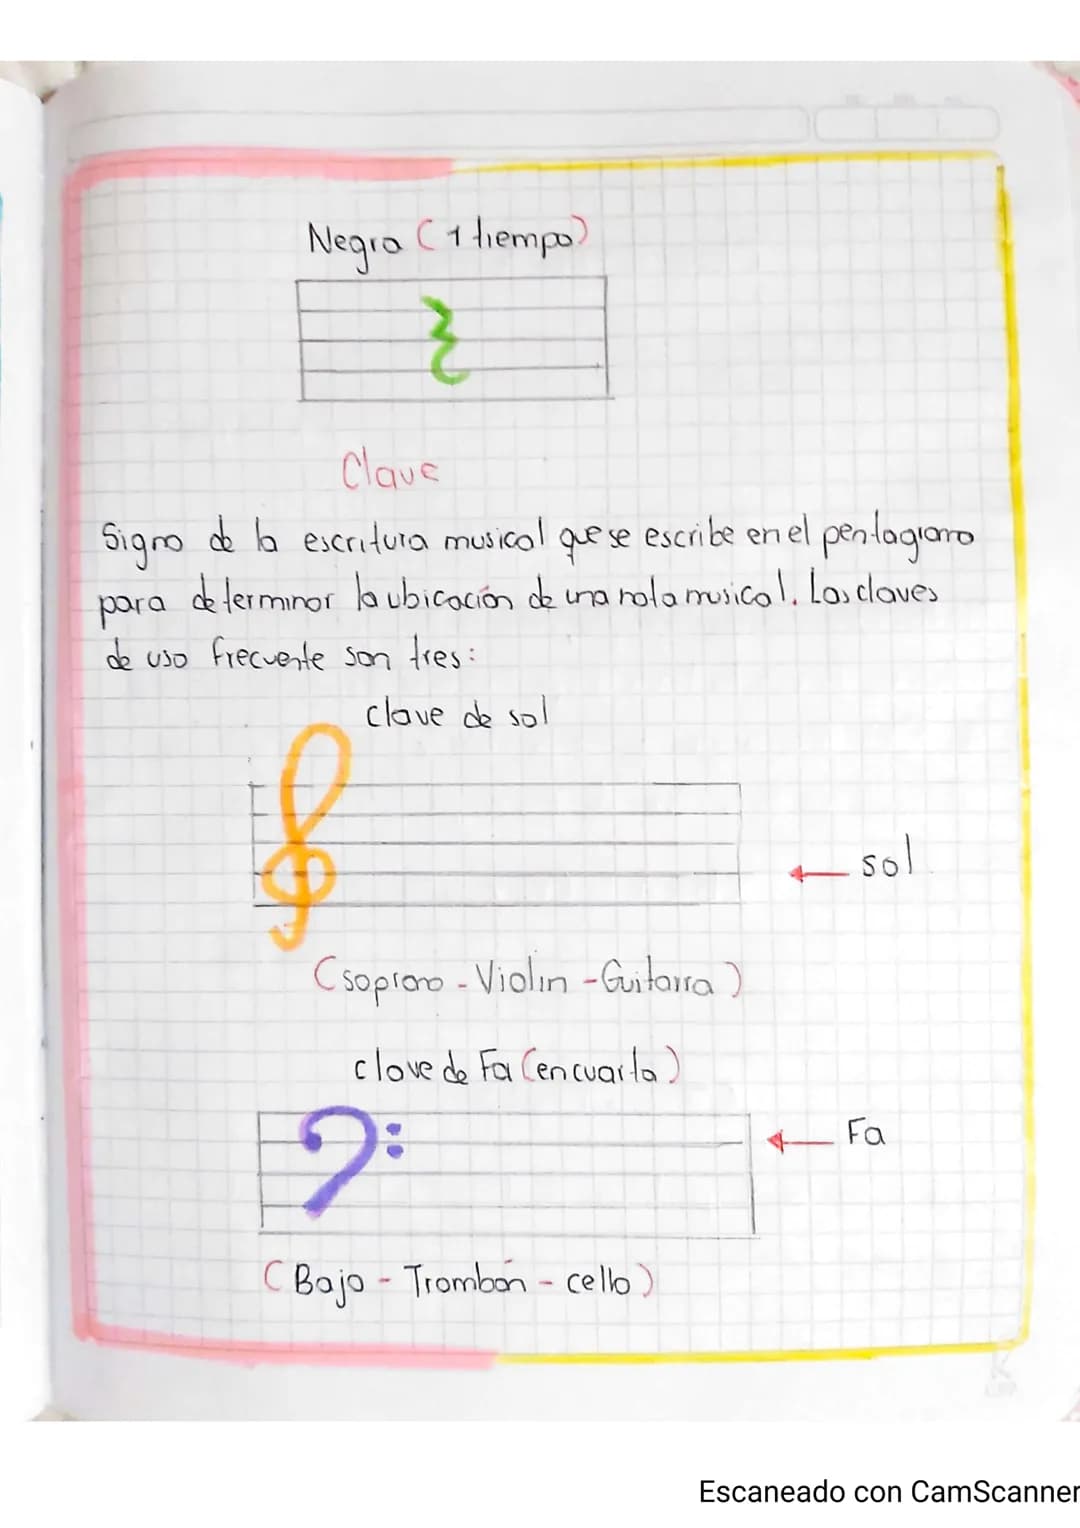 Negra (1 tiempo)
Clave
Signo de la escritura musical que se escribe en el pentagrama
para determinar la ubicación de una nota musical. Las claves
de uso frecuente son tres:
clave de sol
← sol
(soprano - Violin - Guitarra)
clave de Fa (en cuarta)
← Fa
(Bajo - Trombón - cello)
Escaneado con CamScanner